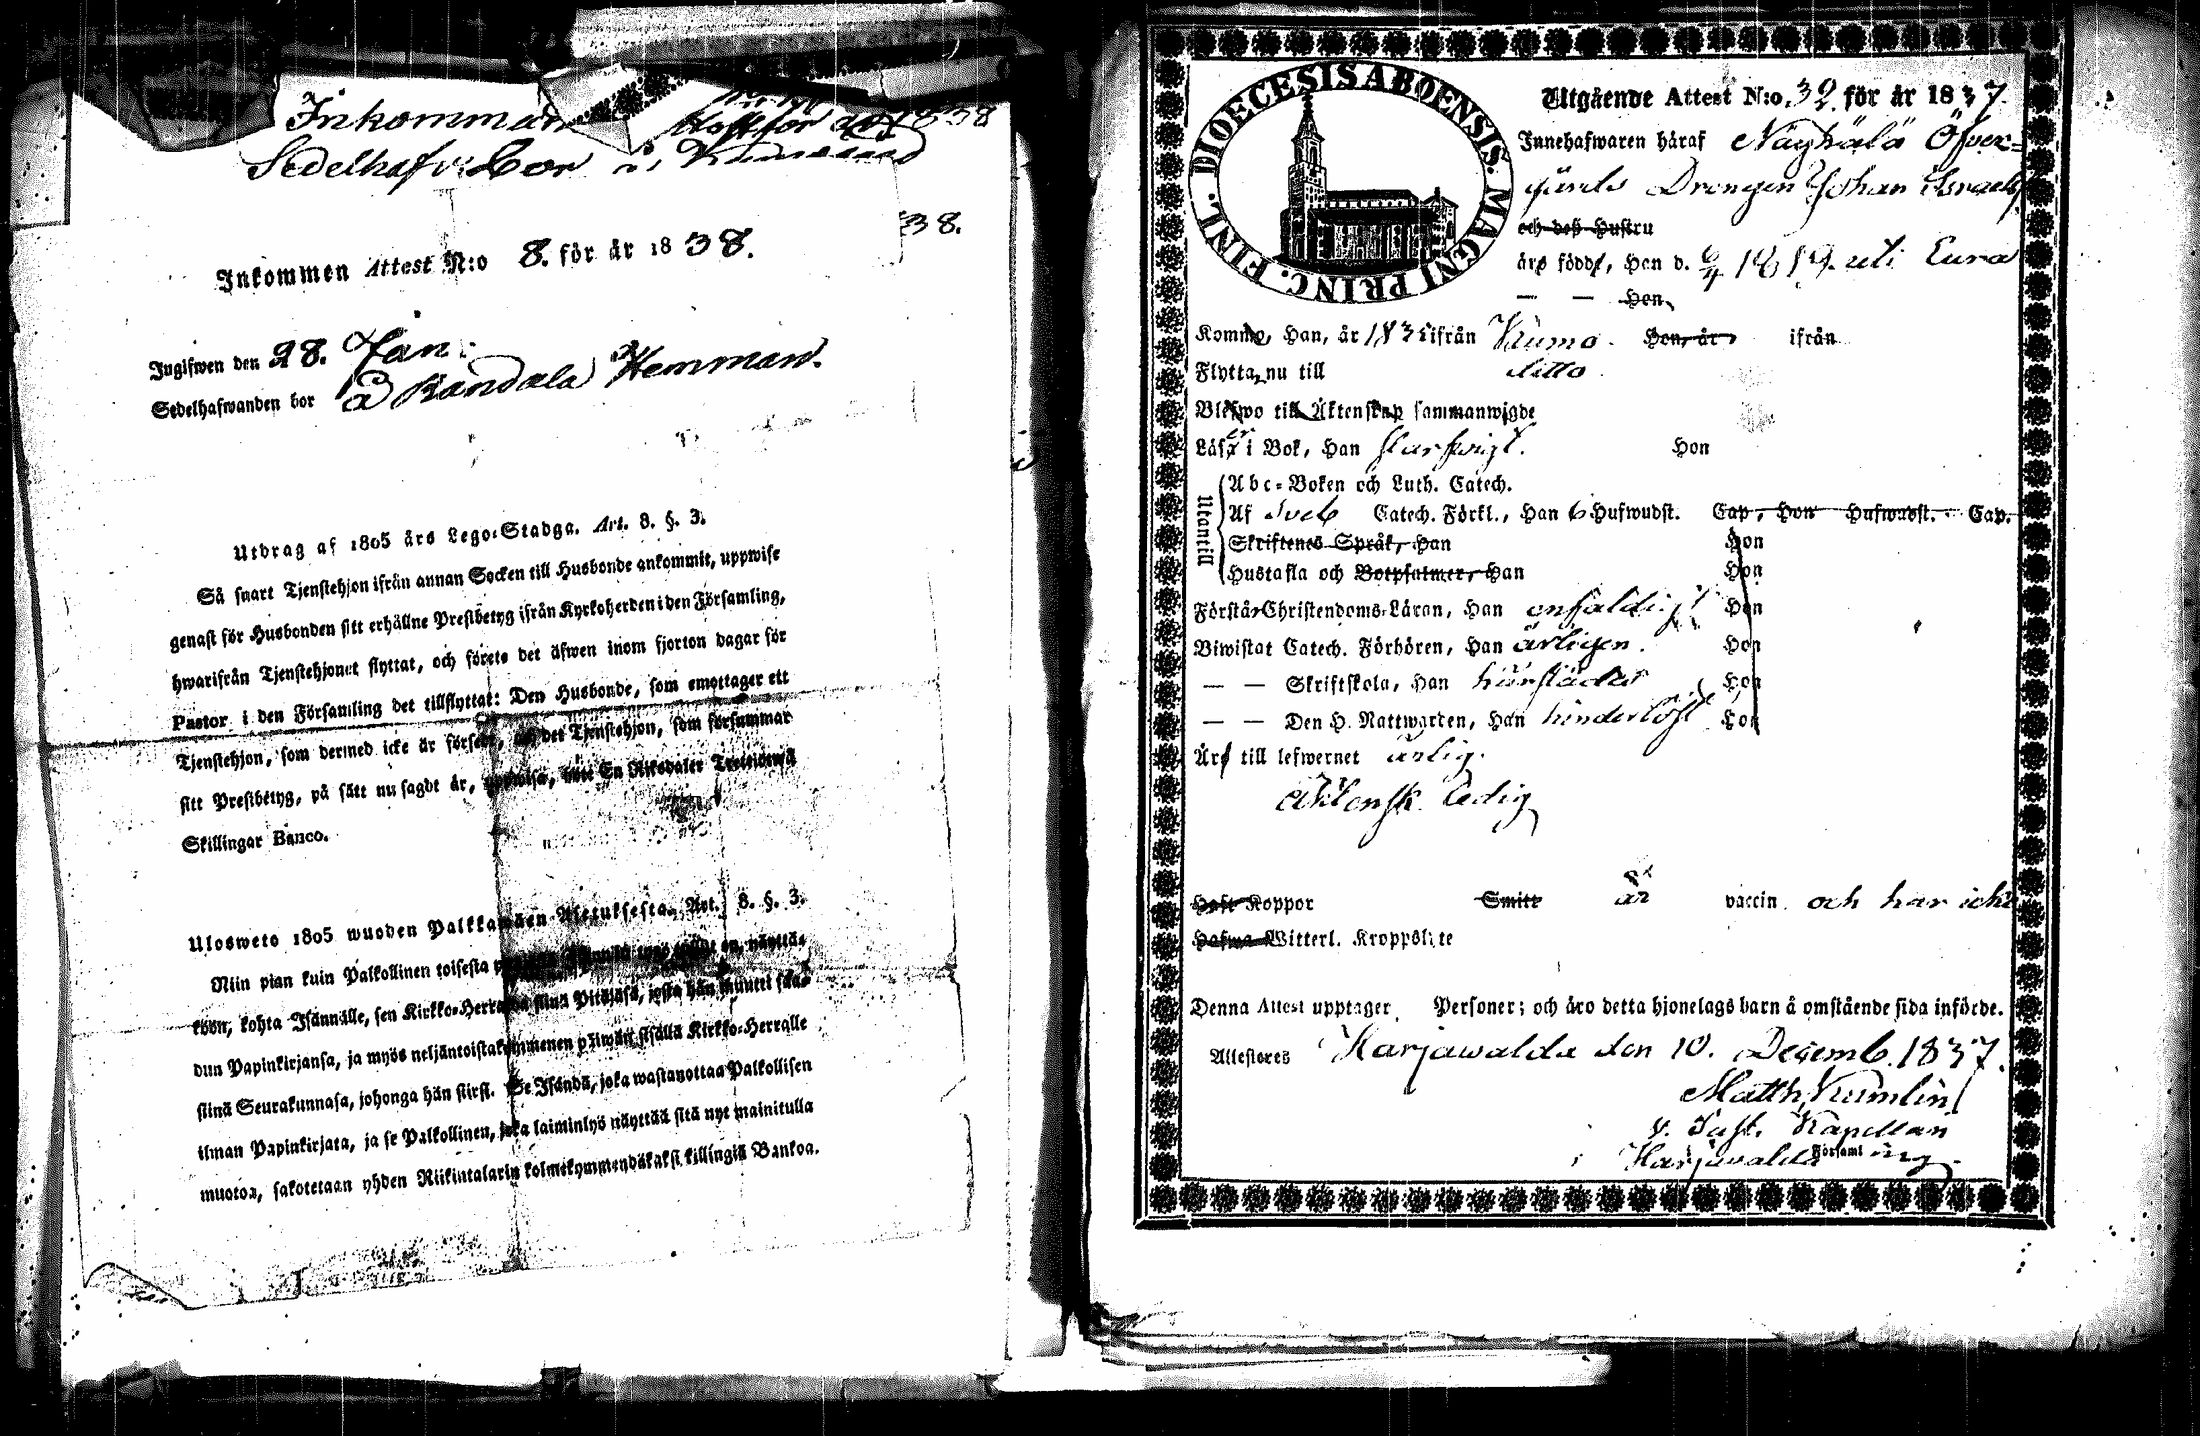 Inkomman
Sedelhafv: bor i
38.
Inkommen Attest N:o 8. för år 1838.
Ingifwen den 28. Jan:
Sedelhafwanden bor å Kandala Hemman.
Utdrag af 1805 års Lego-Stadga. Art. 8. §. 3.
Så snart Tjenstehjon ifrån annan Socken till Husbonde ankommit, uppwise
genast för Husbonden sitt erhållne Prestbetyg ifrån Kyrkoherden i den Församling,
hwarifrån Tjenstehjonet flyttat, och förete det äfwen inom fjorton dagar för
Pastor i den Församling det tillflyttat: Den Husbonde, som emottager ett
Tjenstehjon, som dermed icke är försedt, det Tjenstehjon, som försummar
sitt Prestbetyg, på sätt nu sagdt är, uppwisa, böte En Riksdaler Trettiotwå
Skillingar Banco.
Ulosweto 1805 wuoden Palkkawäen Asetuksesta. Art. 8. §. 3.
Niin pian kuin Palkollinen toisesta on, näyttä-
köön, kohta Isännälle, sen Kirkko-Herralda siinä Pitäjäsä, josta hän muutti saa-
dun Papinkirjansa, ja myös neljäntoistakymmenen päiwän sisällä Kirkko-Herralle
siinä Seurakunnasa, johonga hän siirsi. Se Isändä, joka wastanottaa Palkollisen
ilman Papinkirjata, ja se Palkollinen, joka laiminlyö näyttää sitä nyt mainitulla
muotoa, sakotetaan yhden Riikintalarin kolmekymmendäkaksi killingiä Bankoa.
DIOECESIS ABOENSIS. MAGNI PRINC. FINL.
Utgående Attest N:o 32 för år 1837.
Innehafwaren häraf Näyhälä Öfver-
gårds Drengen Johan Israelss.
och deß Hustru
äro födde, Han d. 6/4 1819. uti Eura
— — Hon,
Kommo, Han, år 1835 ifrån Kumo. Hon, år ifrån
Flytta nu till ditto
Blefwo till Äktenskap sammanwigde
Läser i Bok, Han försvarligt. Hon
Utantill
Abc-Boken och Luth. Catech.
Af Sveb Catech. Förkl., Han 6 Hufwudst. Cap, Hon Hufwudst. Cap.
Skriftenes Språk, Han Hon
Hustafla och Botpsalmer, Han Hon
Förstår Christendoms-Läran, Han enfaldigt Hon
Biwistat Catech. Förhören, Han årligen. Hon
— — Skriftskola, Han härstädes Hon
— — Den H. Nattwarden, Han hinderlöst Hon
Äro till lefwernet ärlig.
Äktensk. ledig
Haft Koppor Smitt är vaccin. och har icke
Hafwa Witterl. Kroppslyte
Denna Attest upptager Personer; och äro detta hjonelags barn å omstående sida införde.
Attesteres Harjawalda den 10. Decemb. 1837.
Matth. Kumlin
v. Past. Kapellan
i Harjawalda Församl ing.